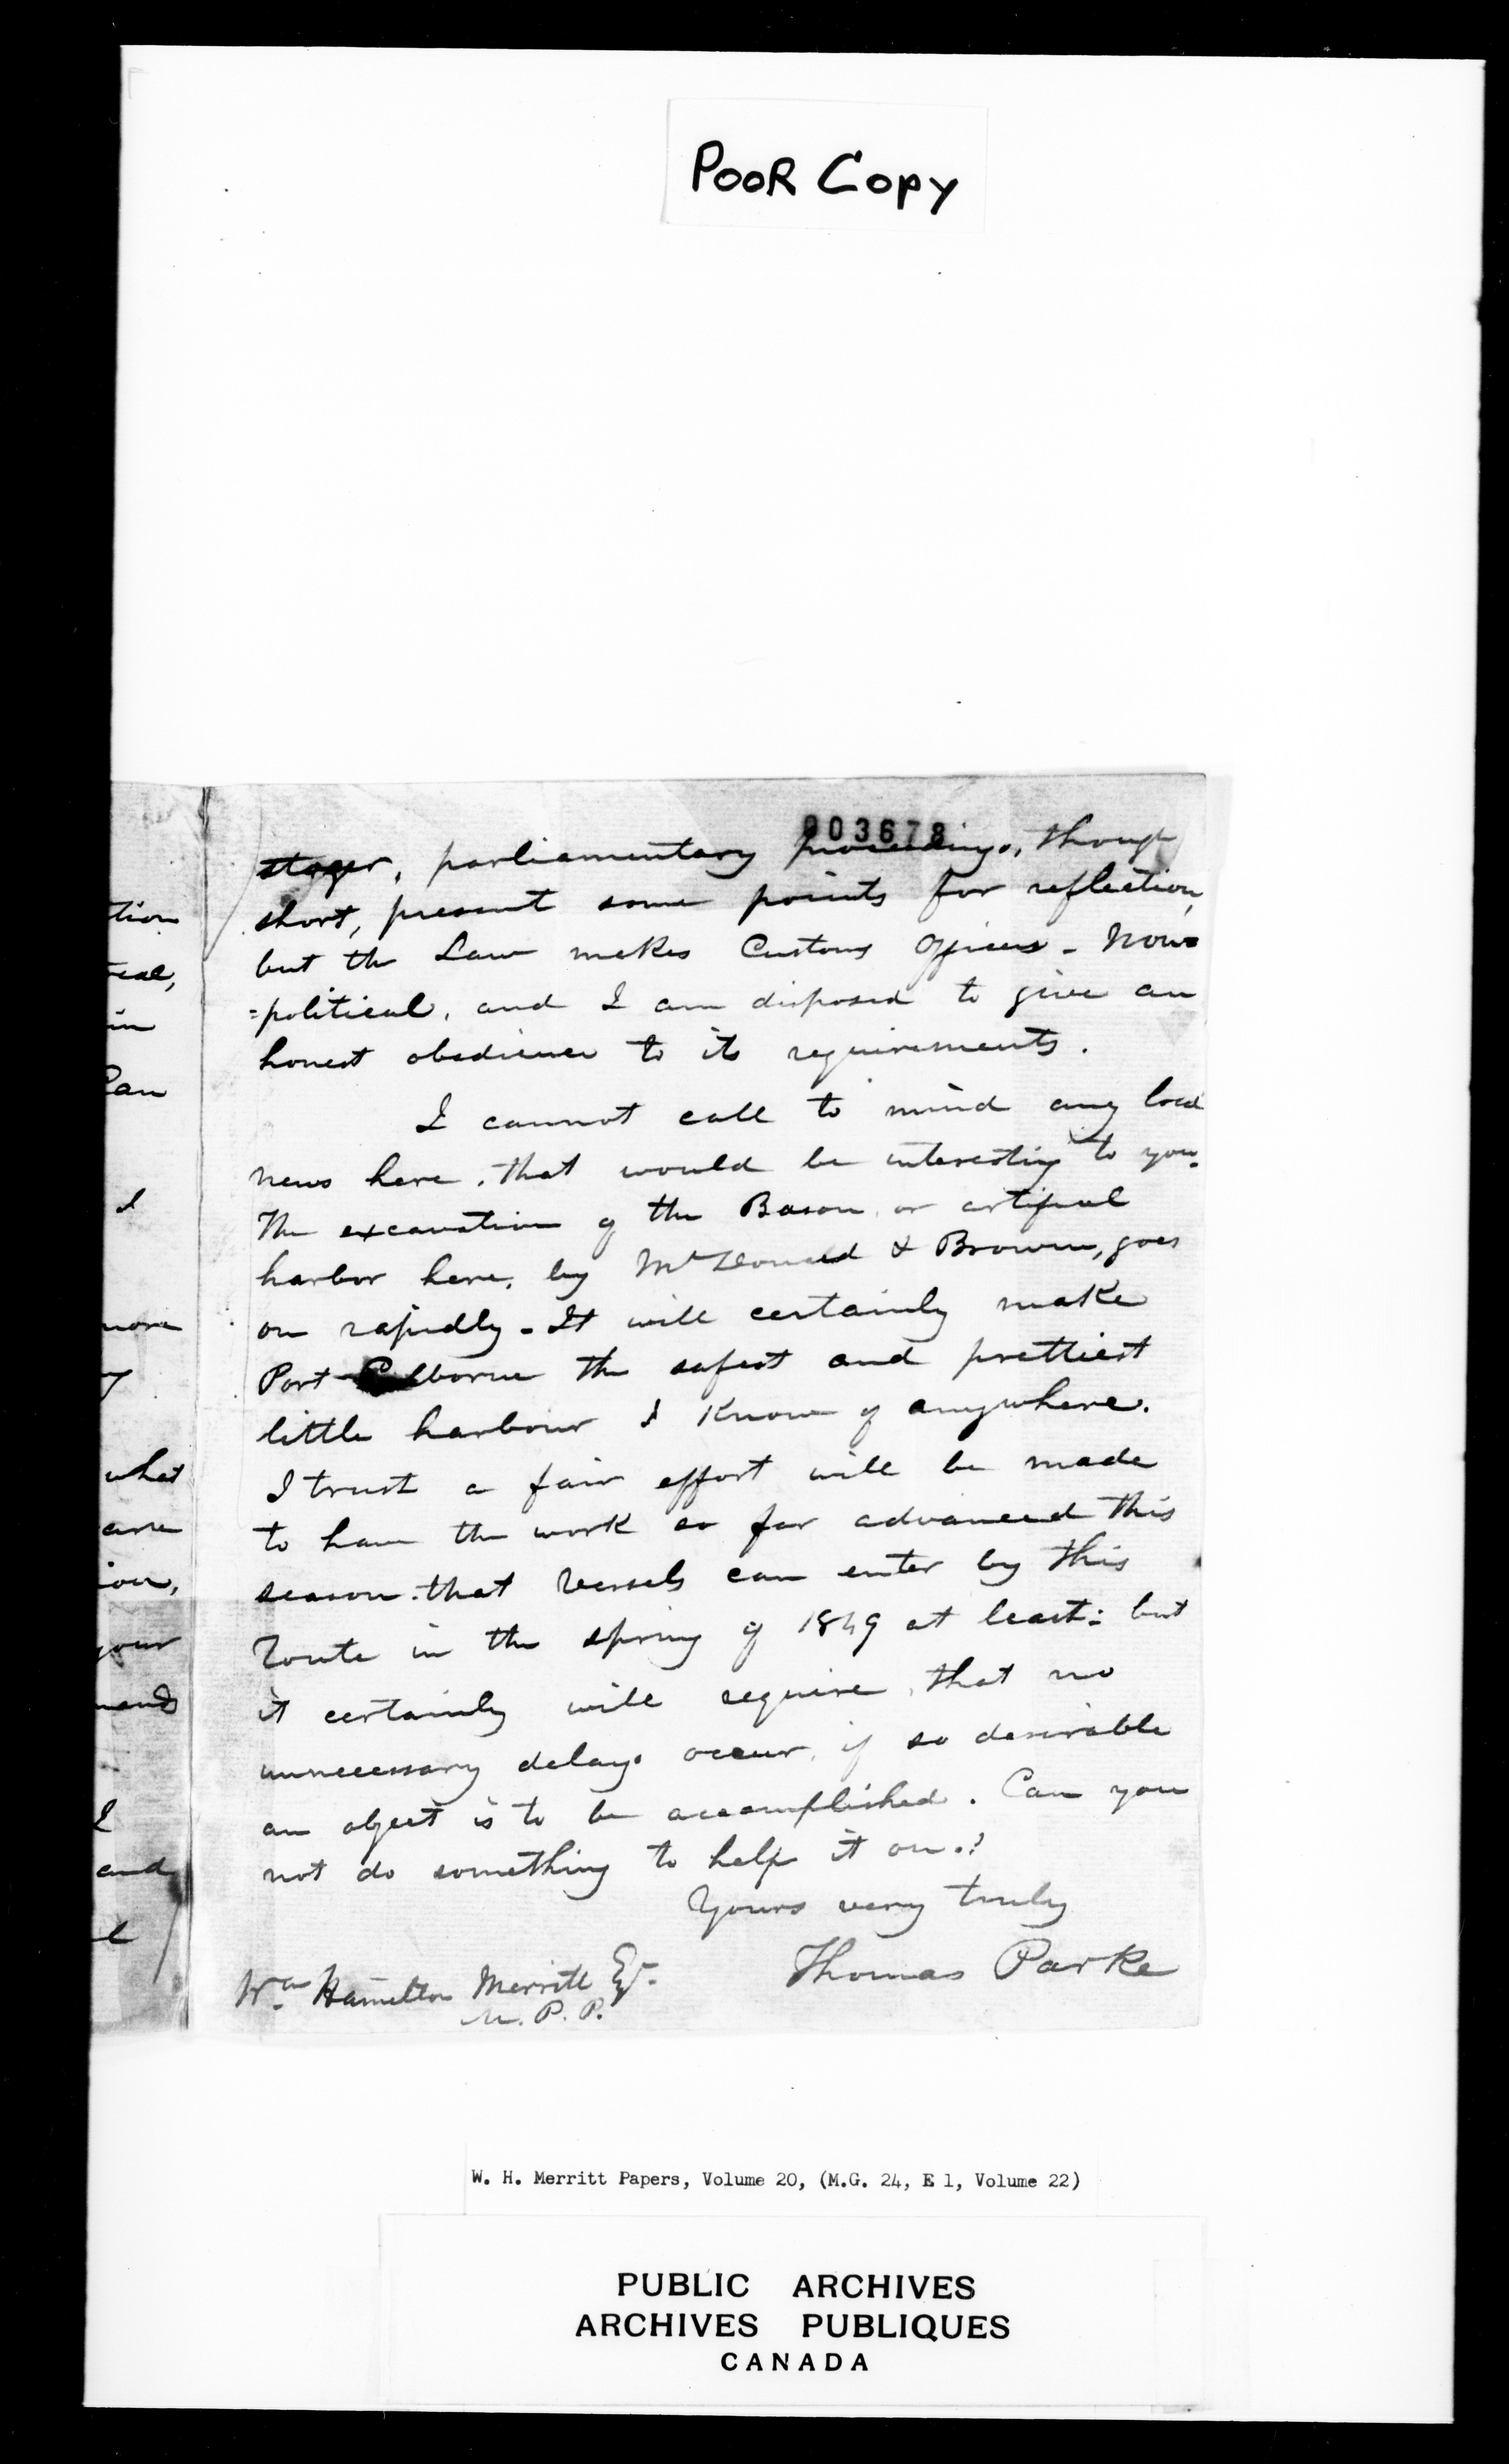 POOR COPY
003678
stager, parliamentary proceedings, though
short, present some points for reflection,
but the Law makes Customs Officers - Non=
=political, and I am disposed to give an
honest obedience to its requirements.
I cannot call to mind any local
news here, that would be interesting to you.
The excavation of the Bason, or artificial
harbor here, by McDonald & Brown, goes
on rapidly - It will certainly make
Port Colborne the safest and prettiest
little harbour I know of anywhere.
I trust a fair effort will be made
to have the work so far advanced this
season that Vessels can enter by this
route in the spring of 1849 at least: but
it certainly will require, that no
unnecessary delays occur, if so desirable
an object is to be accomplished. Can you
not do something to help it on.?
Yours very truly
Thomas Parke
Wm Hamilton Merritt Esqr.
M.P.P.
tion
real,
in
Can
I
more
y
what
are
ion,
your
mends
I
and
l
W. H. Merritt Papers, Volume 20, (M.G. 24, E 1, Volume 22)
PUBLIC ARCHIVES
ARCHIVES PUBLIQUES
CANADA